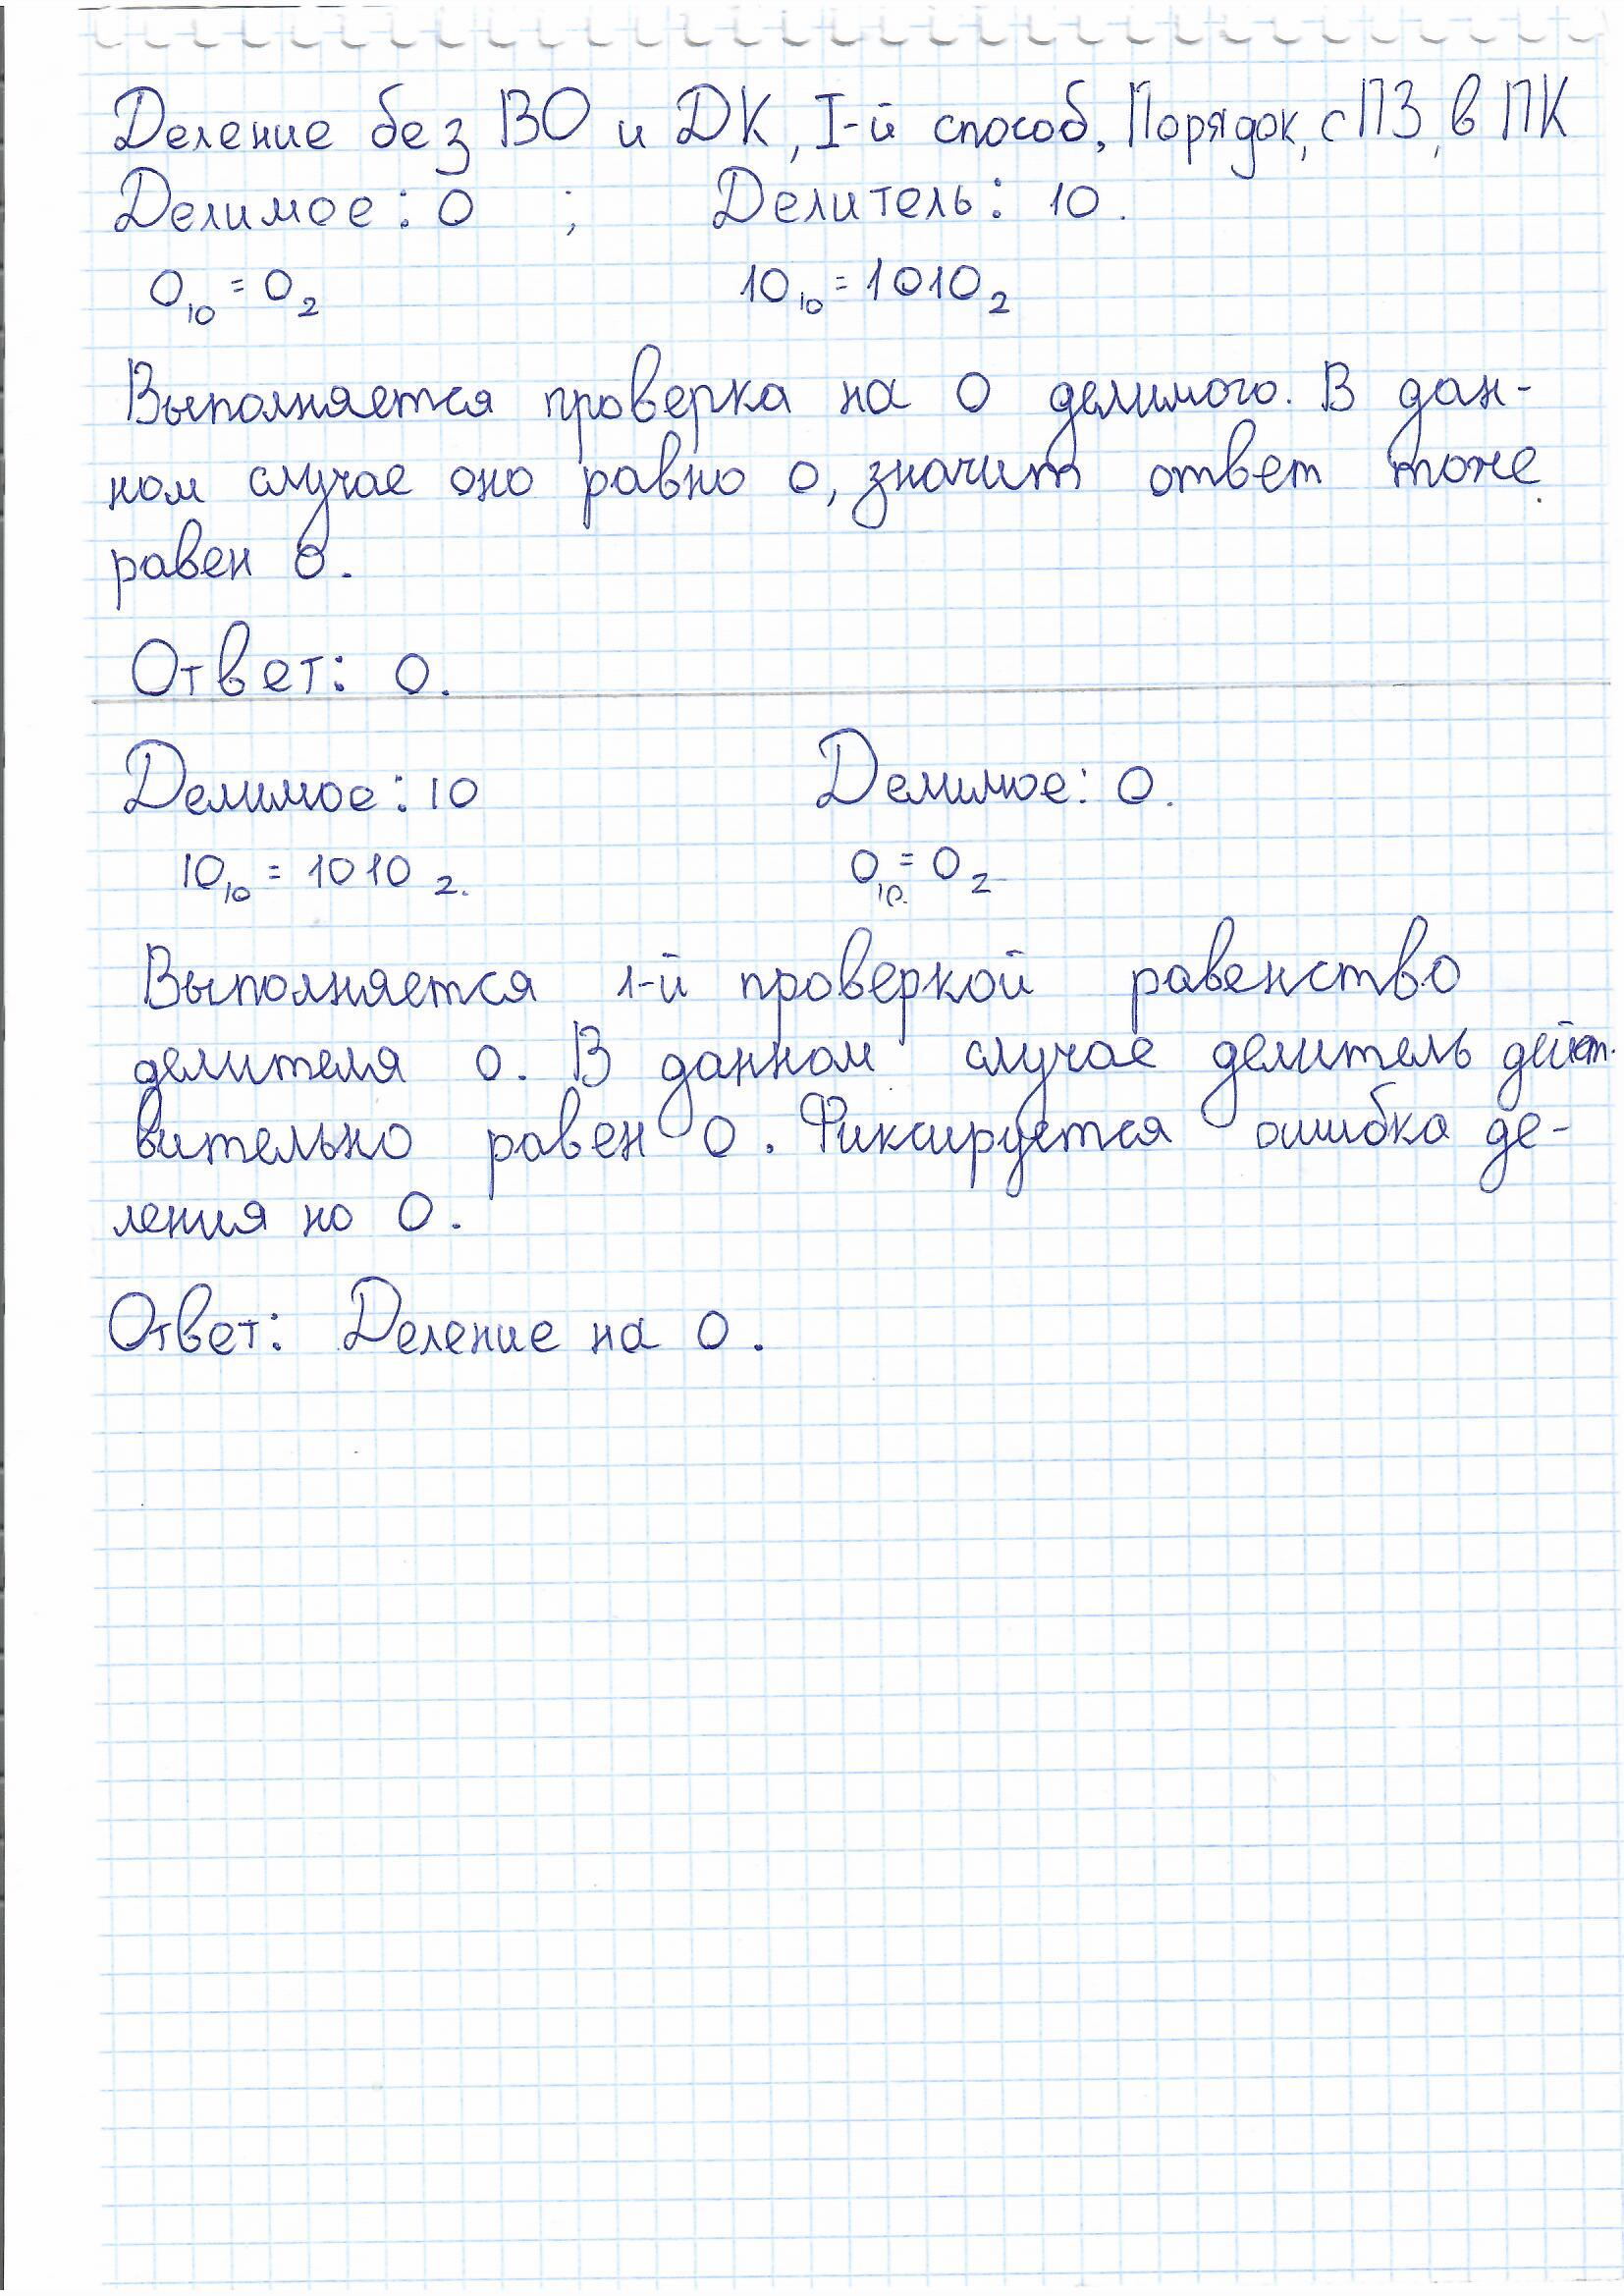 Деление без ВО и ДК, I-й способ, Порядок, с ПЗ, в ПК
Делимое: 0 ; Делитель: 10.
0₁₀ = 0₂ 10₁₀ = 1010₂
Выполняется проверка на 0 делимого. В дан-
ном случае оно равно 0, значит ответ тоже
равен 0.
Ответ: 0.
Делимое: 10 Делимое: 0.
10₁₀ = 1010₂. 0₁₀. = 0₂
Выполняется 1-й проверкой равенство
делителя 0. В данном случае делитель дейст-
вительно равен 0. Фиксируется ошибка де-
ления на 0.
Ответ: Деление на 0.